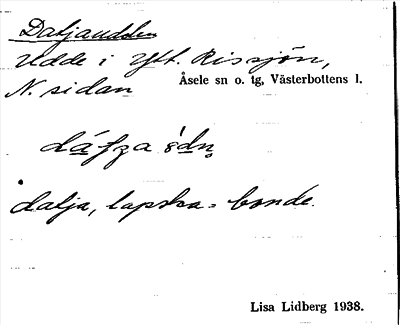 Daljaudden
Udde i Ytt. Rissjön,
Åsele sn o. tg, Västerbottens l.
N. sidan
dalja, lapska = bonde.
Lisa Lidberg 1938.